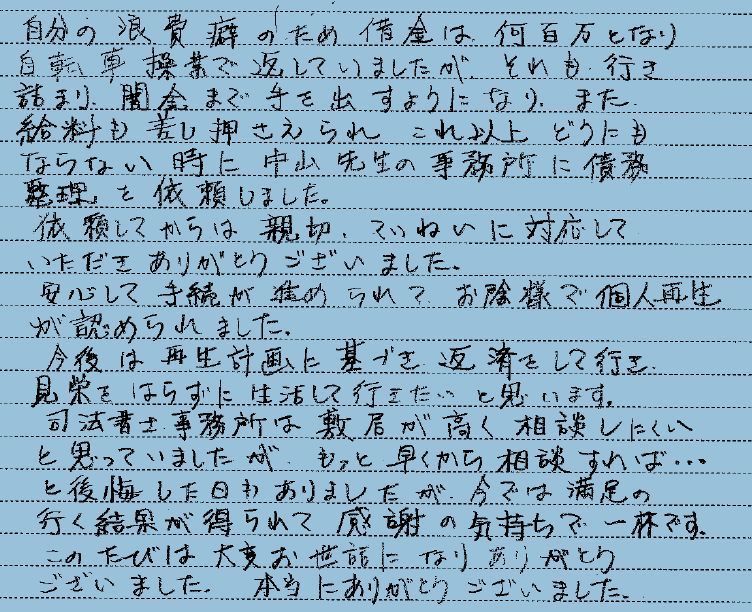 自分の浪費癖のため借金は何百万となり
自転車操業で返していましたが、それも行き
詰まり、闇金まで手を出すようになり、また
給料も差し押さえられ、これ以上どうにも
ならない時に中山先生の事務所に債務
整理を依頼しました。
依頼してからは親切、ていねいに対応して
いただきありがとうございました。
安心して手続が進められて、お陰様で個人再生
が認められました。
今後は再生計画に基づき返済をして行き、
見栄をはらずに生活して行きたいと思います。
司法書士事務所は敷居が高く相談しにくい
と思っていましたが、もっと早くから相談すれば…
と後悔した日もありましたが、今では満足の
行く結果が得られて感謝の気持ちで一杯です。
このたびは大変お世話になりありがとう
ございました。本当にありがとうございました。